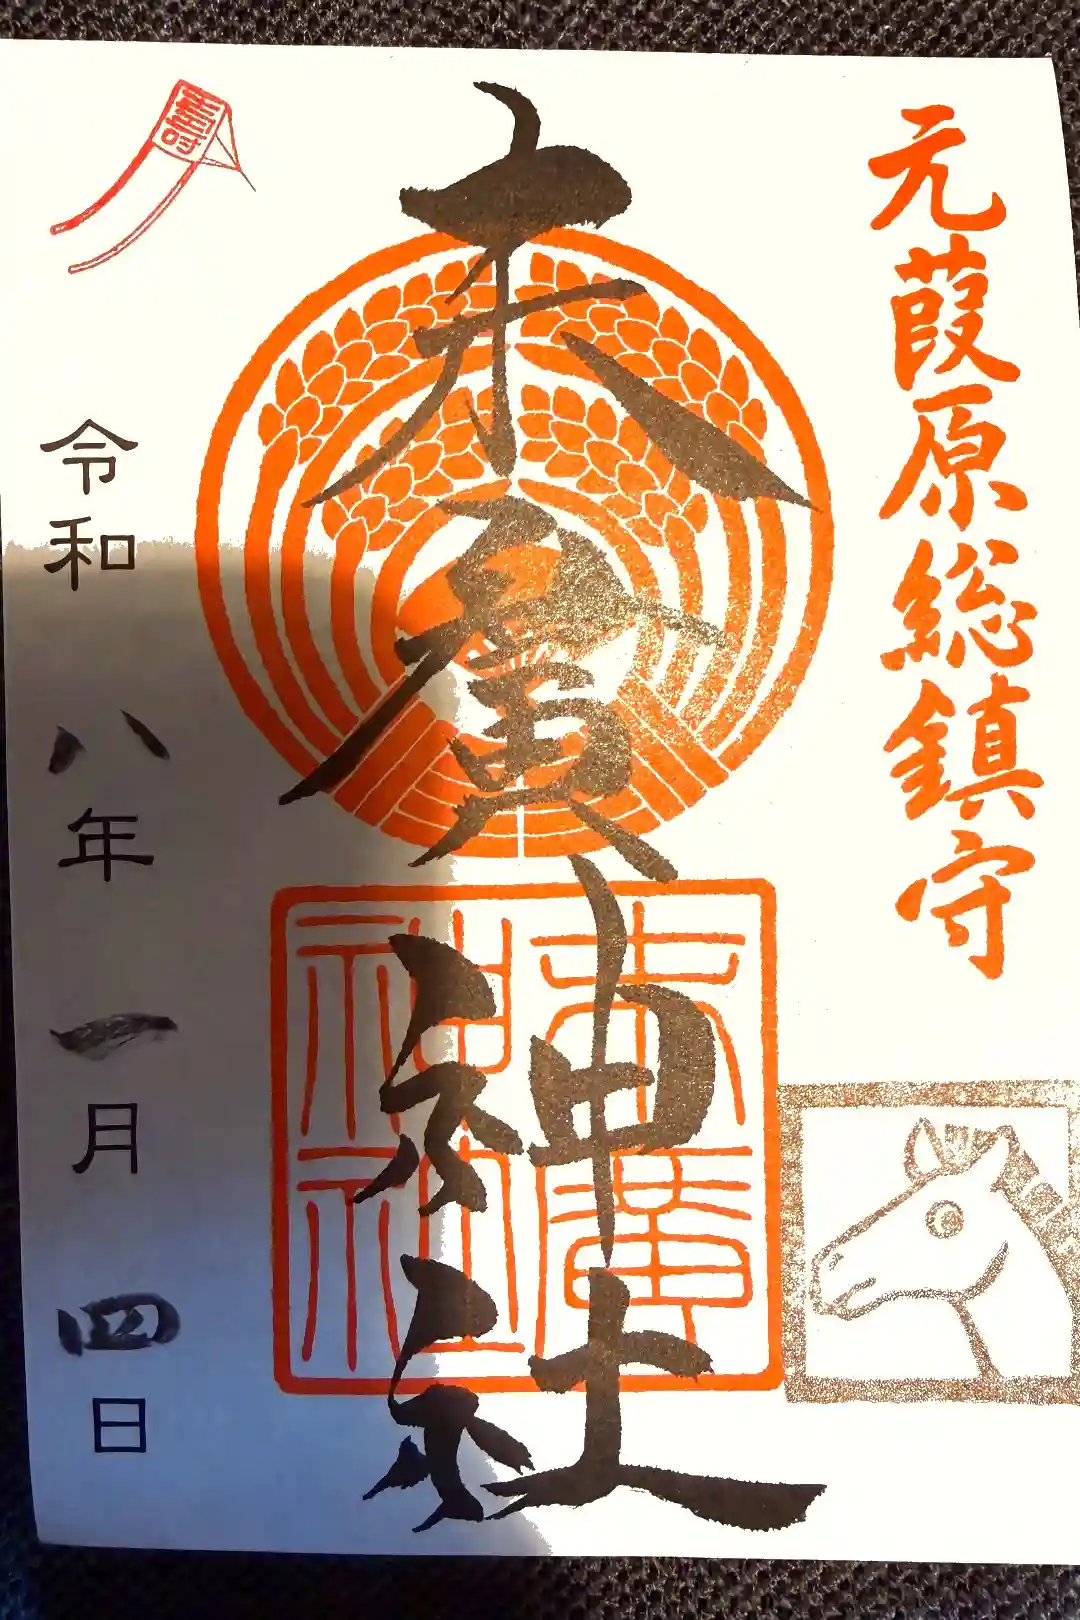 元葭原総鎮守
末廣神社
末廣
神社
壽
令和八年一月四日